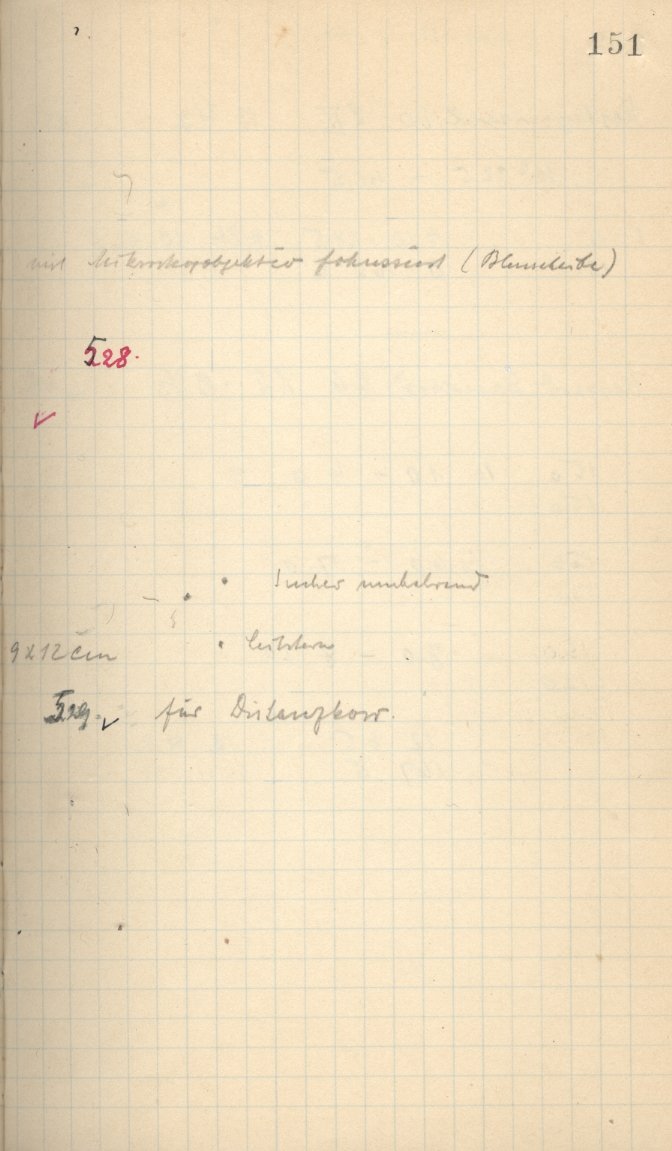 151
mit Mikroskopobjektiv fokussiert (
528.
Sucher umkehrend
9 x 12 cm
Leitstern
529. für Distanzkorr.